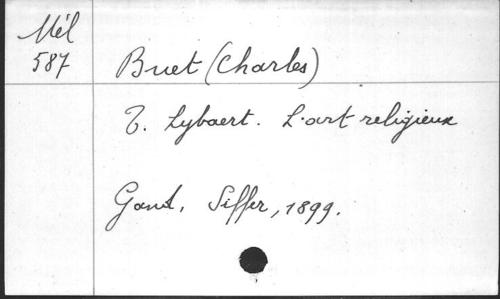 Mél
587
Buet (Charles)
T. Lybaert. L'art religieux
Gand, Siffer, 1899.